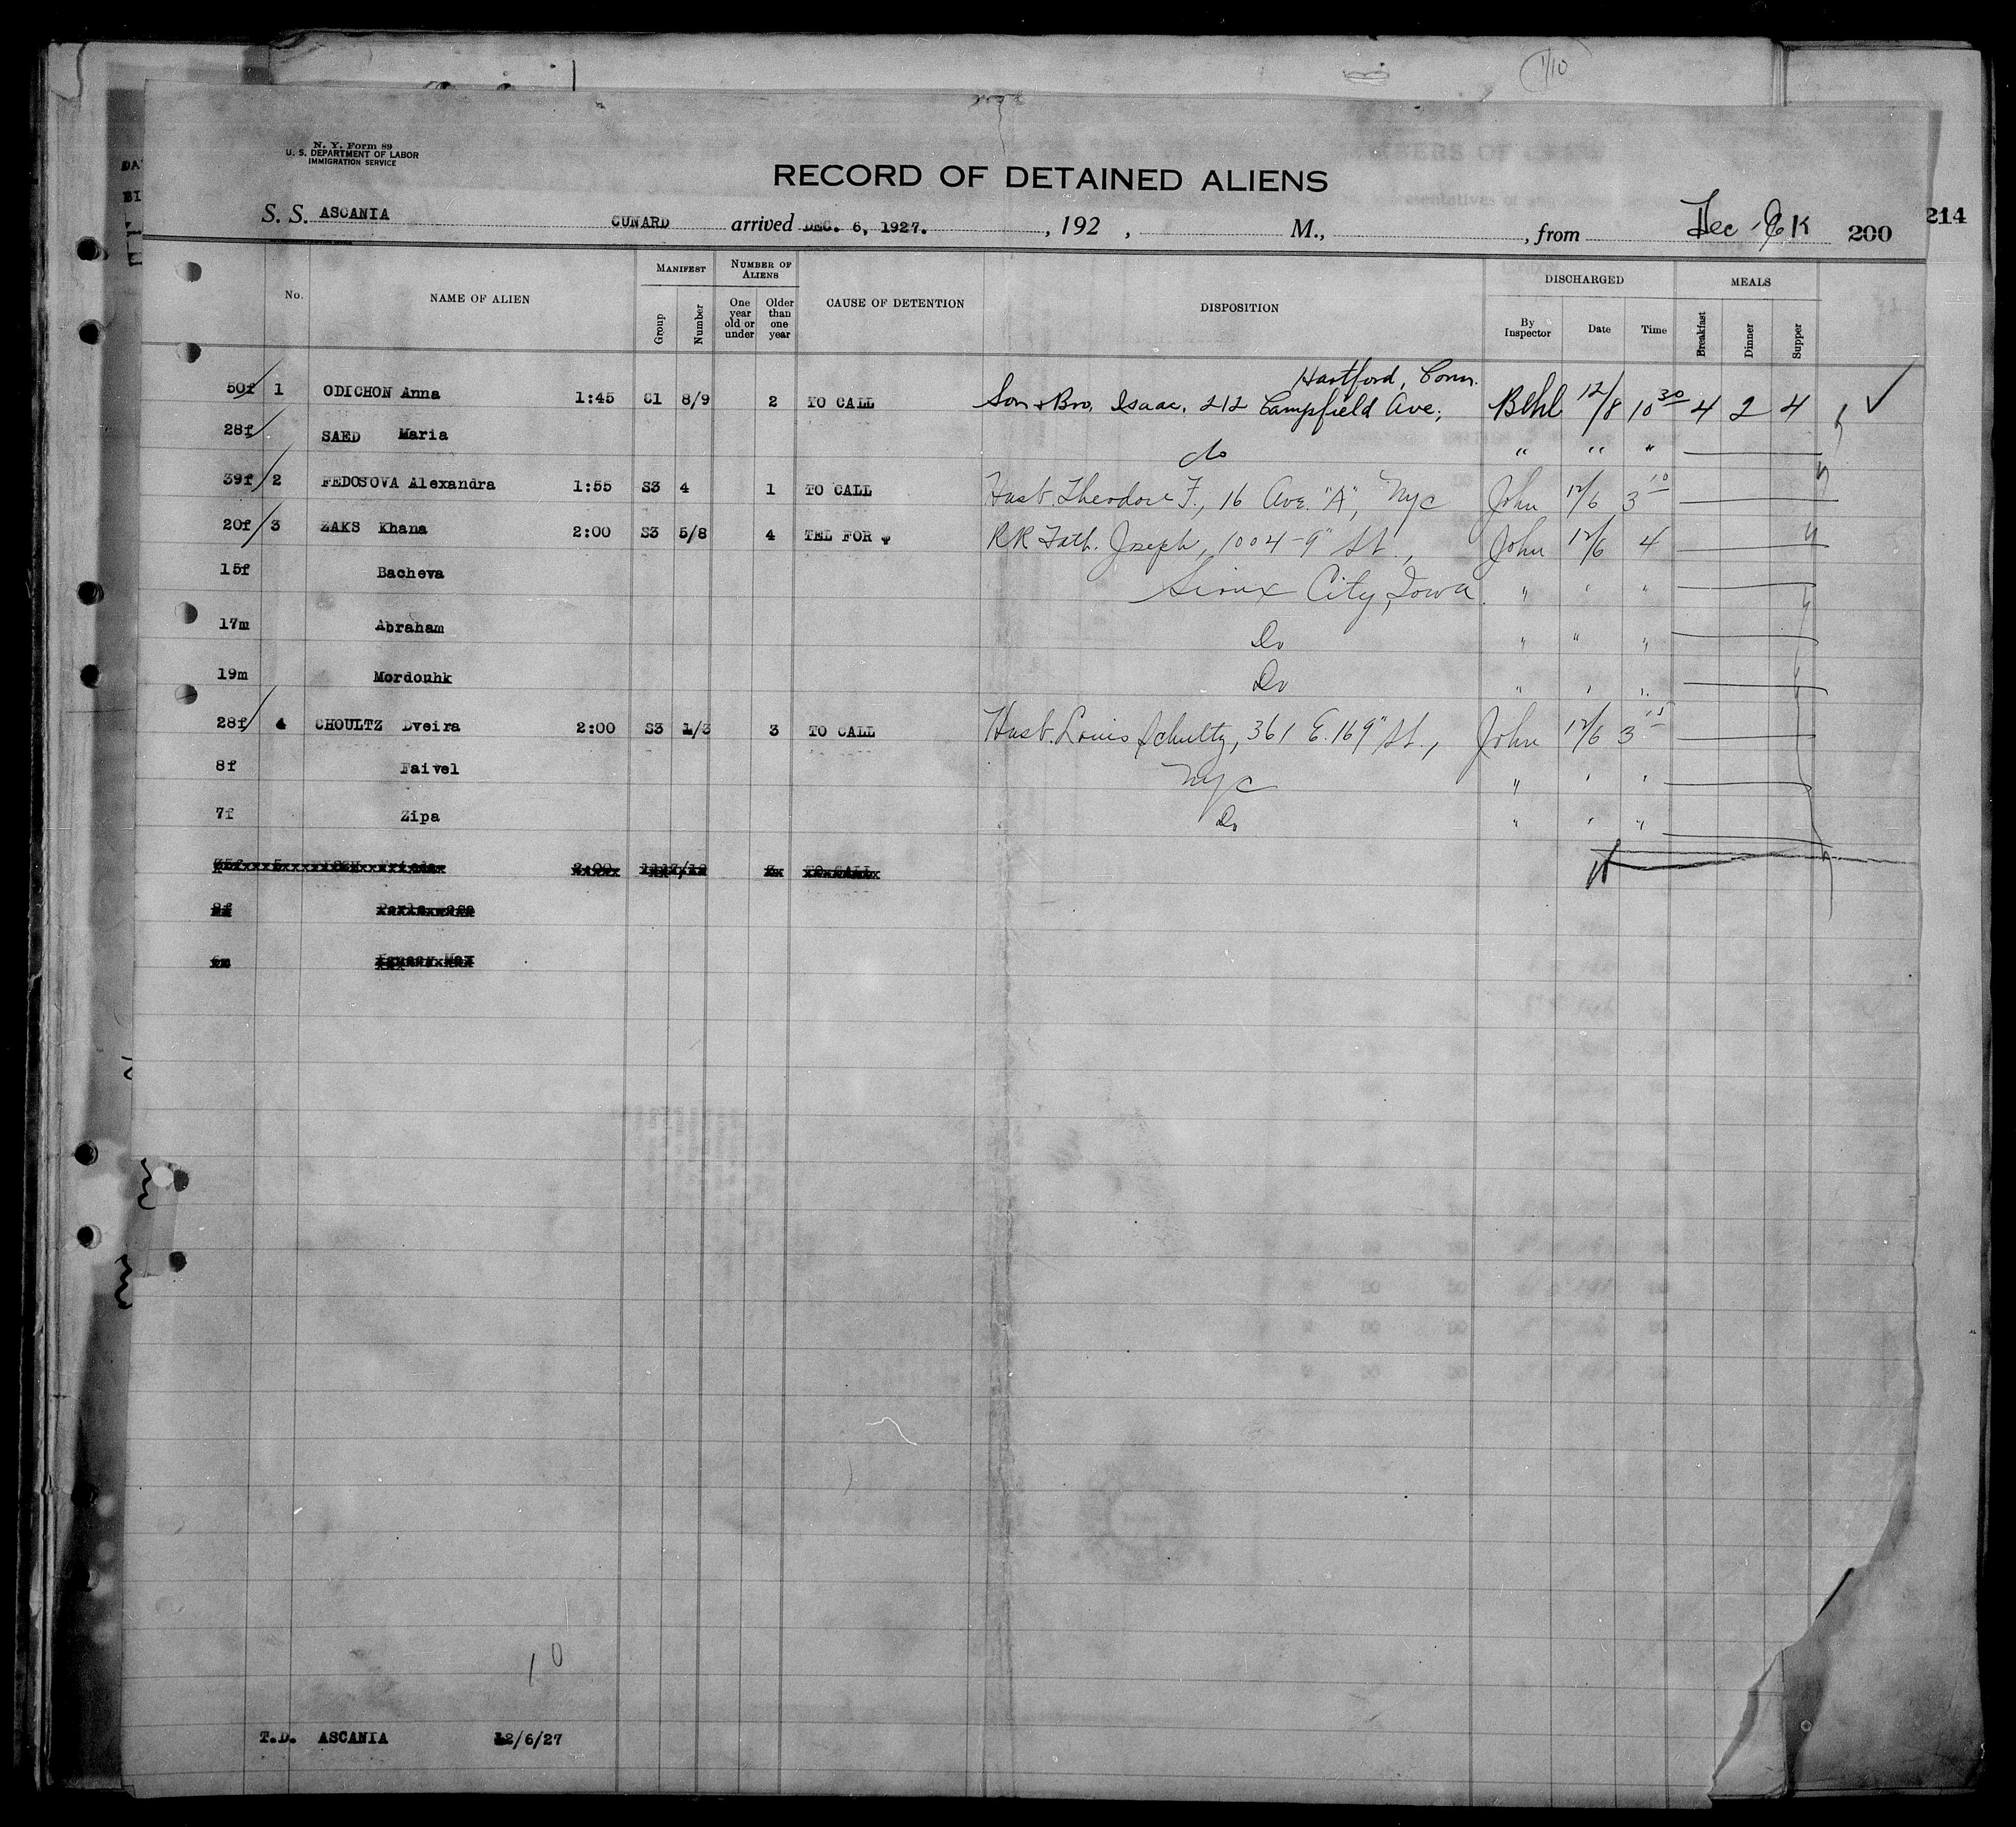 1/10
N. Y. Form 89
U. S. DEPARTMENT OF LABOR
IMMIGRATION SERVICE
RECORD OF DETAINED ALIENS
S. S. ASCANIA CUNARD arrived DEC. 6, 1927. , 192 , M., , from Dec 200 214
No. NAME OF ALIEN MANIFEST Group Number NUMBER OF ALIENS One year old or under Older than one year CAUSE OF DETENTION DISPOSITION DISCHARGED By Inspector Date Time MEALS Breakfast Dinner Supper
Hartford, Conn.
50f 1 ODICHON Anna 1:45 C1 8/9 2 TO CALL Son & Bro, Isaac, 212 Campfield Ave; 12/8 10 30 4 2 4
28f SAED Maria do " " "
39f 2 FEDOSOVA Alexandra 1:55 S3 4 1 TO CALL Husb. Theodore F., 16 Ave. "A", NYC John 12/6 3 10
20f 3 ZAKS Khana 2:00 S3 5/8 4 TEL FOR RR Fath. Joseph, 1004-9" St., John 12/6 4
15f Bacheva Sioux City, Iowa " " "
17m Abraham Do " " "
19m Mordouhk Do " " "
28f 4 CHOULTZ Dveira 2:00 S3 1/3 3 TO CALL Husb. Louis Schultz, 361 E. 169" St., John 12/6 3 15
8f Faivel NYC " " "
7f Zipa Do " " "
5 2:00 TO CALL
10
T.D. ASCANIA 12/6/27